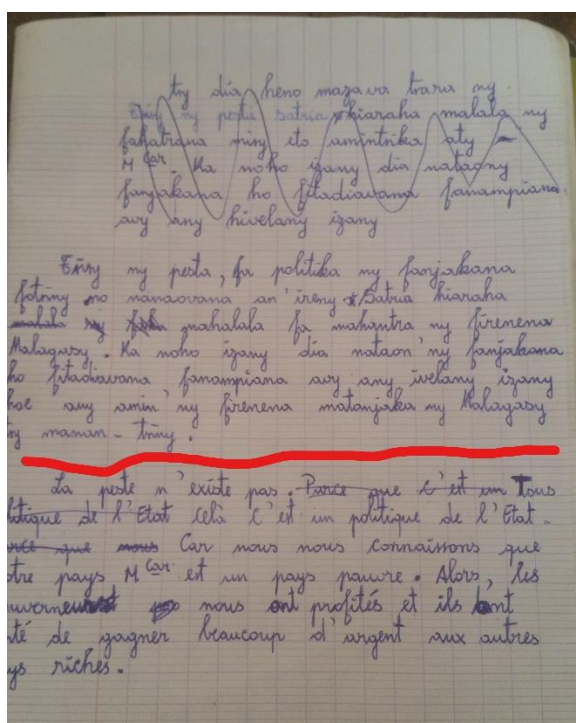 try dia heno mazava tsara ny
Tsisy ny pesta satria hiaraha malala ny
fahatrana misy eto amintsika aty
M Car. Ka noho izany dia nataony
fanjakana ho fitadiavana fanampiana
avy any hivelany izany
Tsisy ny pesta, fa politika ny fanjakana
fotsiny no nanaovana an'ireny satria hiaraha
malala ny mahalala fa mahantra ny firenena
Malagasy. Ka noho izany dia nataon'ny fanjakana
ho fitadiavana fanampiana avy any ivelany izany
hoe avy amin'ny firenena matanjaka ny Malagasy
tsy manan-tsiny.
La peste n'existe pas. Parce que c'est un Tous
litique de l'Etat Celà c'est un politique de l'Etat.
arce que nous Car nous nous connaissons que
otre pays M Car est un pays pauvre. Alors, les
ouvernement nous ont profités et ils ont
té de gagner beaucoup d'argent aux autres
ys riches.